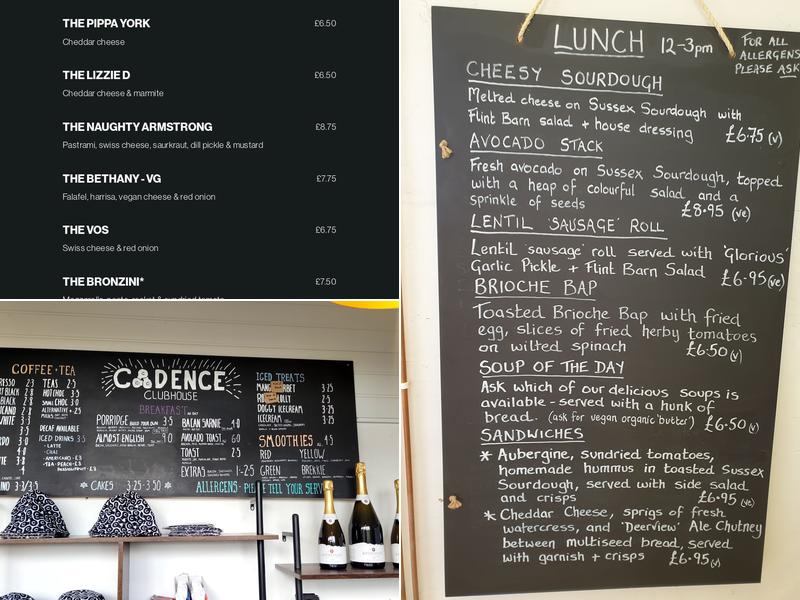 THE PIPPA YORK £6.50
Cheddar cheese
THE LIZZIE D £6.50
Cheddar cheese & marmite
THE NAUGHTY ARMSTRONG £8.75
Pastrami, swiss cheese, saurkraut, dill pickle & mustard
THE BETHANY - VG £7.75
Falafel, harrisa, vegan cheese & red onion
THE VOS £6.75
Swiss cheese & red onion
THE BRONZINI* £7.50
COFFEE + TEA
TEAS 2.5
HOT CHOC 3.5
SMALL CHOC 3.0
DECAF AVAILABLE
ICED DRINKS 3.5
- LATTE
- CHAI
CADENCE
CLUBHOUSE
BREAKFAST
PORRIDGE 3.5
ALMOST ENGLISH
BALCAN SARNIE 4.8
AVOCADO TOAST 6.0
TOAST 2.5
EXTRAS 1-2.5
* CAKES 3.25-3.50 *
ICED TREATS
3.25
DOGGY ICECREAM 3.25
ICECREAM 3.25
SMOOTHIES 4.5
RED YELLOW
GREEN BREKKIE
ALLERGENS - TELL YOUR SERV
LUNCH 12-3pm
FOR ALL
ALLERGENS
PLEASE ASK
CHEESY SOURDOUGH
Melted cheese on Sussex Sourdough with
Flint Barn salad + house dressing £6.75 (v)
AVOCADO STACK
Fresh avocado on Sussex Sourdough, topped
with a heap of colourful salad and a
sprinkle of seeds £8.95 (ve)
LENTIL 'SAUSAGE' ROLL
Lentil 'sausage' roll served with 'Glorious'
Garlic Pickle + Flint Barn Salad £6.95 (ve)
BRIOCHE BAP
Toasted Brioche Bap with fried
egg, slices of fried herby tomatoes
on wilted spinach £6.50 (v)
SOUP OF THE DAY
Ask which of our delicious soups is
available - served with a hunk of
bread. (ask for vegan organic 'butter') £6.50 (v)
SANDWICHES
* Aubergine, sundried tomatoes,
homemade hummus in toasted Sussex
Sourdough, served with side salad
and crisps £6.95 (ve)
* Cheddar Cheese, sprigs of fresh
watercress, and 'Deerview' Ale Chutney
between multiseed bread, served
with garnish + crisps £6.95 (v)